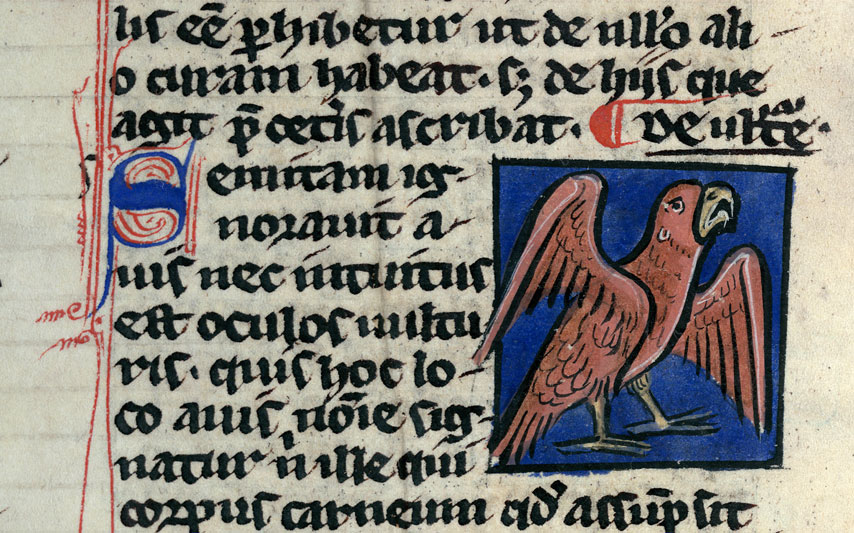 lis eẽ ꝑhibetur ut de ullo ali
o curam habeat. sꝫ de hijs que
agit p̃ ceťis ascribat. De ultr̃e.
Semitam ig-
norauit a-
uis nec intuitus
est oculos uultu-
ris. quis hoc lo-
co auis, nõie sig-
natur ñ ille qui
corpus carneum qd̓ assũpsit